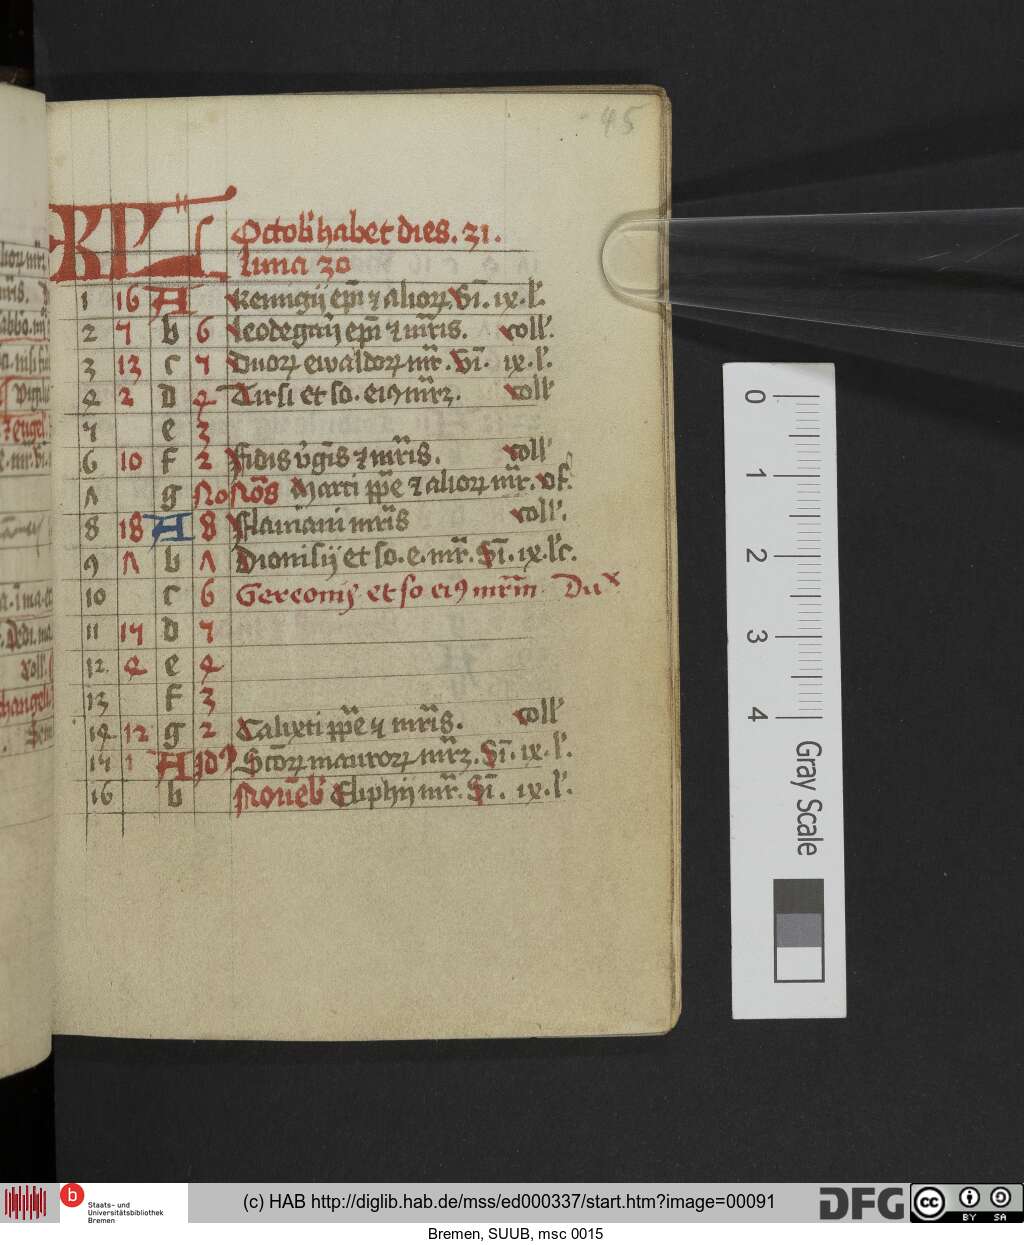 45
KL Octob' habet dies. 31.
luna 30
1 16 A Remigii ep̄i ⁊ alioꝝ. Vī. ix. l'.
2 5 b 6 leodegarij ep̄i ⁊ mr̄is. coll'.
3 13 c 5 Duoꝝ ewaldoꝝ mr̄. Vī. ix. l'.
4 2 d 4 Tirsi et so. eiꝰ mr̄ꝝ. coll'
5 e 3
6 10 f 2 Fidis v̓gīs ⁊ mr̄is. coll'
7 g No Nōs Marci pp̄e ⁊ alioꝝ mr̄.
8 18 A 8 mr̄is coll'.
9 7 b 7 Dionisij et so. e. mr̄. Vī. ix. l'c.
10 c 6 Gereonis et so eiꝰ mr̄m Du
11 15 d 5
12 4 e 4
13 f 3
14 12 g 2 Calixti pp̄e ⁊ mr̄is. coll'
15 1 A Idꝰ Sc̄oꝝ mauroꝝ mr̄ꝝ. Vī. ix. l'.
16 b Nouēb' Eliphij mr̄. Vī. ix. l'.
0
1
2
3
4
Gray Scale
b Staats- und
Universitätsbibliothek
Bremen
(c) HAB http://diglib.hab.de/mss/ed000337/start.htm?image=00091
DFG
cc BY SA
Bremen, SUUB, msc 0015